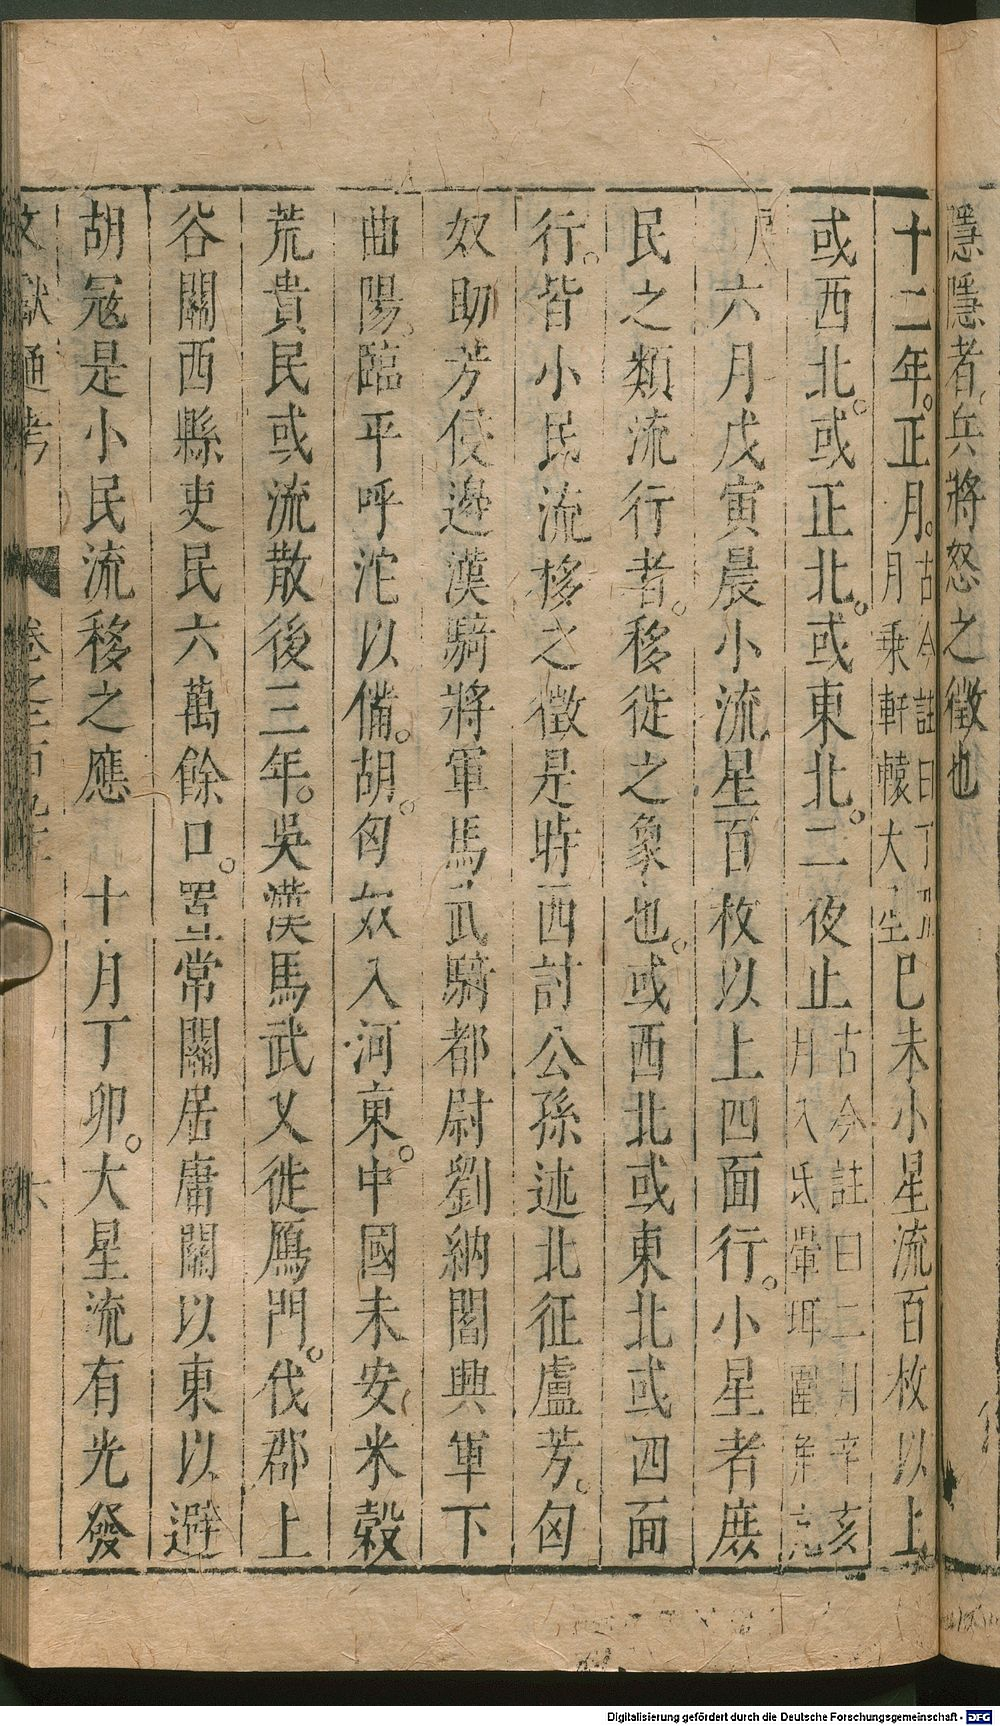 隱隱者兵將怒之徵也
十二年。正月。古今註曰丁丑月乘軒轅大星己未小星流百枚以上
或西北。或正北。或東北。二夜止古今註曰二月辛亥月入氐暈珥圍角亢
六月戊寅晨小流星百枚以上四面行。小星者庶
民之類流行者。移徙之象也。或西北或東北或四面
行。皆小民流移之徵是時西討公孫述北征盧芳。匈
奴助芳侵邊漢騎將軍馬武騎都尉劉納閻興軍下
曲陽。臨平呼沱以備。胡。匈奴入河東。中國未安米穀
荒貴民或流散後三年。吳漢馬武又徙鴈門。伐郡上
谷關西縣吏民六萬餘口。置常關居庸關以東以避
胡冦是小民流移之應　十月丁卯。大星流有光發
文獻通考　卷之二百九十　六
Digitalisierung gefördert durch die Deutsche Forschungsgemeinschaft - DFG